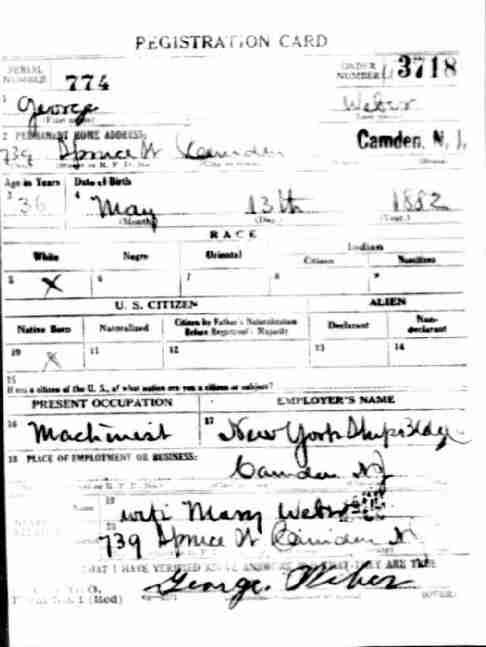 REGISTRATION CARD
SERIAL NUMBER 774 ORDER NUMBER 3718
1 George Weber
(First name) (Last name)
2 PERMANENT HOME ADDRESS: Camden, N. J.
739 Spruce St Camden
Age in Years Date of Birth
3 36 4 May 13th 1882
(Month) (Day) (Year)
RACE
White Negro Oriental Indian
Citizen Noncitizen
5 X 6 7 8 9
U. S. CITIZEN ALIEN
Native Born Naturalized Citizen by Father's Naturalization Before Registrant's Majority Declarant Non-declarant
10 X 11 12 13 14
15
If not a citizen of the U. S., of what nation are you a citizen or subject?
PRESENT OCCUPATION EMPLOYER'S NAME
16 Machinist 17 New York Ship Bldg
18 PLACE OF EMPLOYMENT OR BUSINESS:
Camden NJ
Name 19 wife Mary Weber
20 739 Spruce St Camden NJ
THAT I HAVE VERIFIED ABOVE ANSWERS THAT THEY ARE TRUE
George Weber
(OVER)